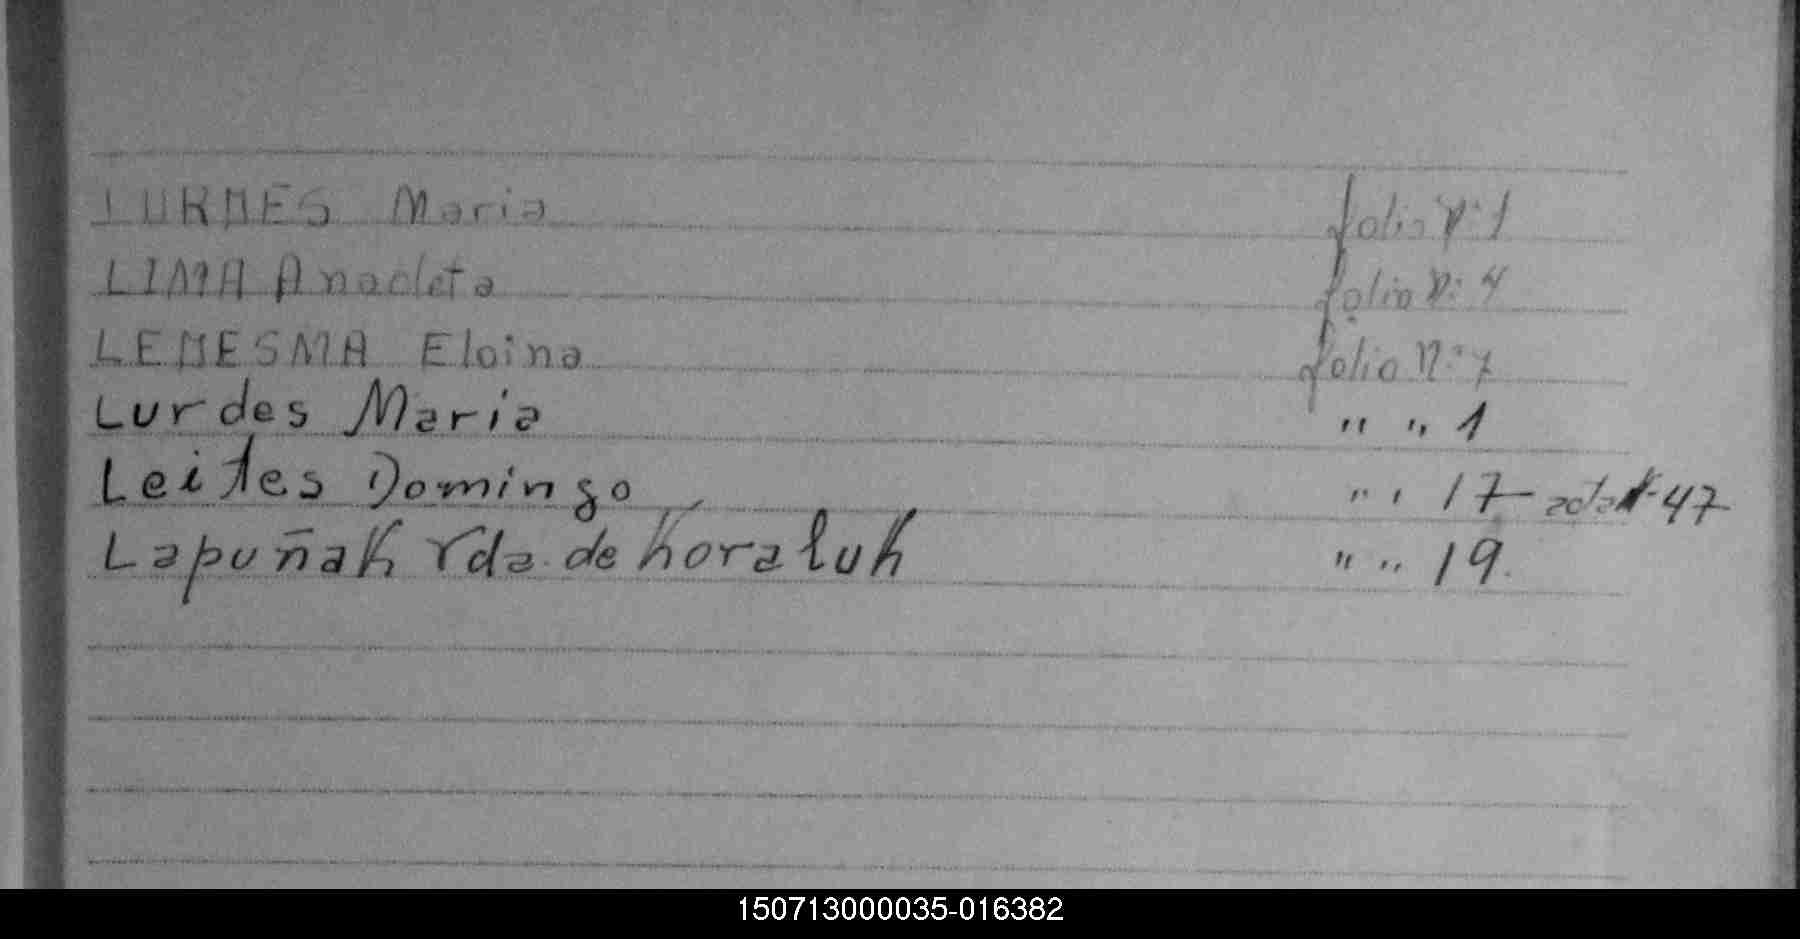 LURDES Maria folio Nº 1
LIMA Anacleta folio Nº 4
LEDESMA Eloina folio Nº 7
Lurdes Maria " " 1
Leites Domingo " " 17 - acta Nº 47
Lapuñak Vda. de Koraluk " " 19.
150713000035-016382